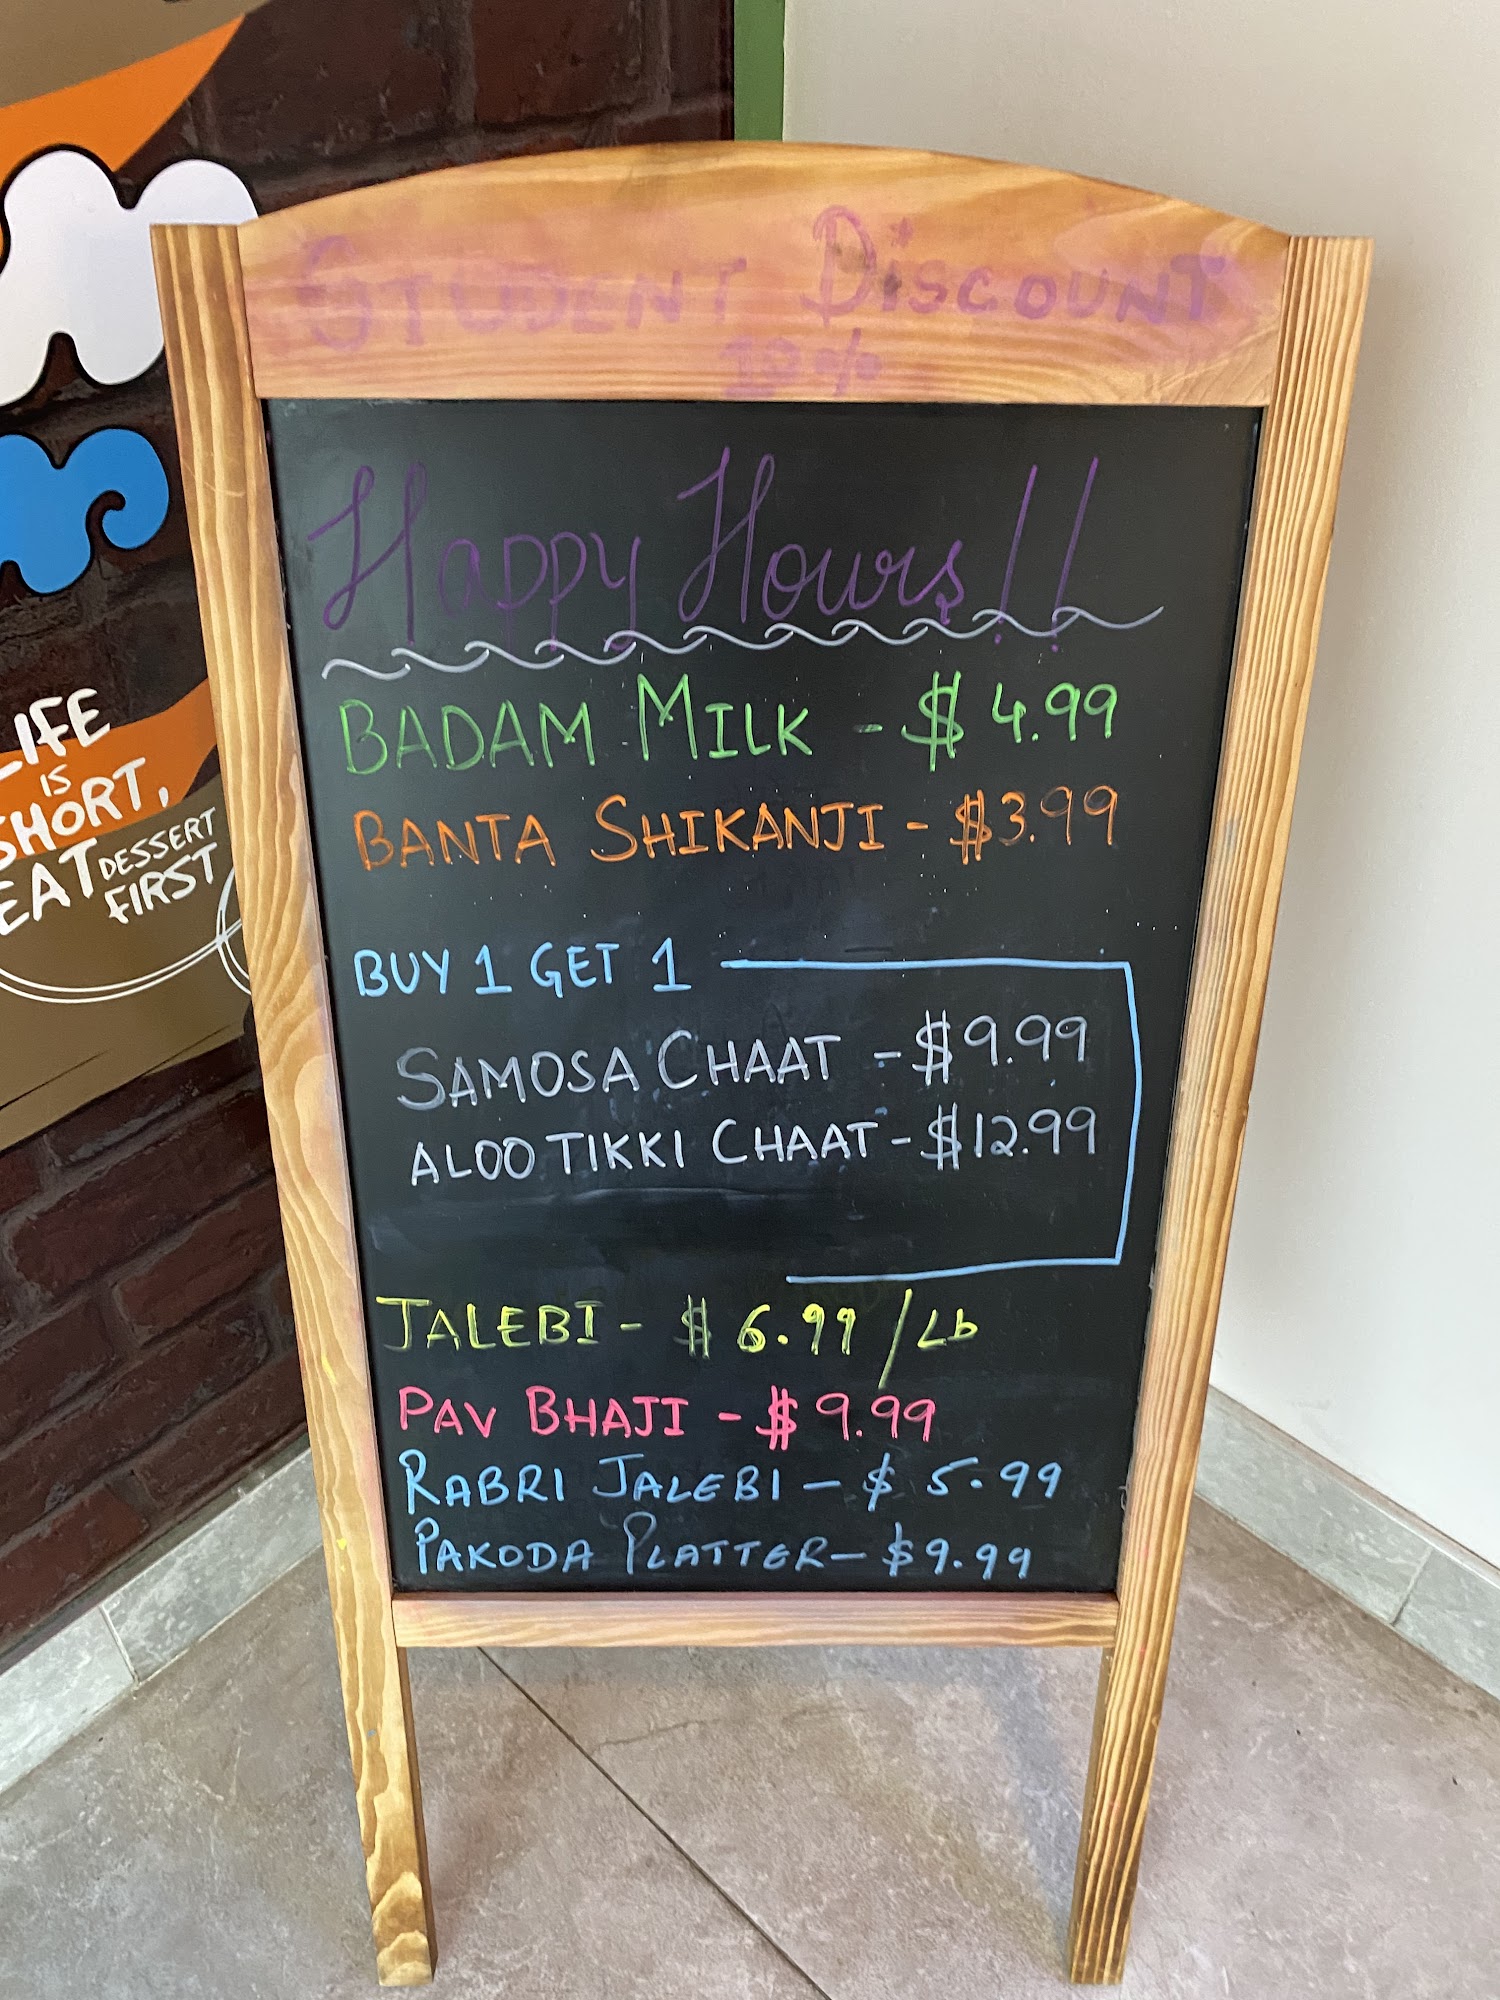 STUDENT DISCOUNT
10%
Happy Hours!!
BADAM MILK - $ 4.99
BANTA SHIKANJI - $3.99
BUY 1 GET 1
SAMOSA CHAAT - $9.99
ALOO TIKKI CHAAT - $12.99
JALEBI - $ 6.99 / Lb
PAV BHAJI - $9.99
RABRI JALEBI - $ 5.99
PAKODA PLATTER - $9.99
LIFE
IS
SHORT,
EAT DESSERT
FIRST